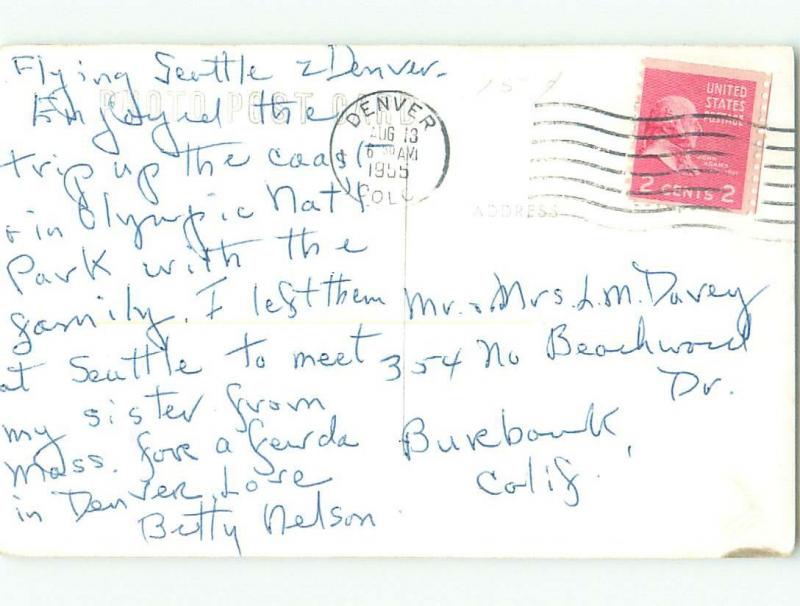 Flying Seattle 2 Denver.
PHOTO POST CARD
Enjoyed the
trip up the coast
+ in Olympic Nat'l
Park with the
family. I left them
at Seattle to meet
my sister from
Mass. for a few da
in Denver. Love
Betty Nelson
DENVER
AUG 13
6 AM
1955
COLO
UNITED
STATES
POSTAGE
JOHN
ADAMS
2 CENTS 2
ADDRESS
Mr. + Mrs. L.M. Davey
354 No Beachwood
Dr.
Burbank,
Calif.